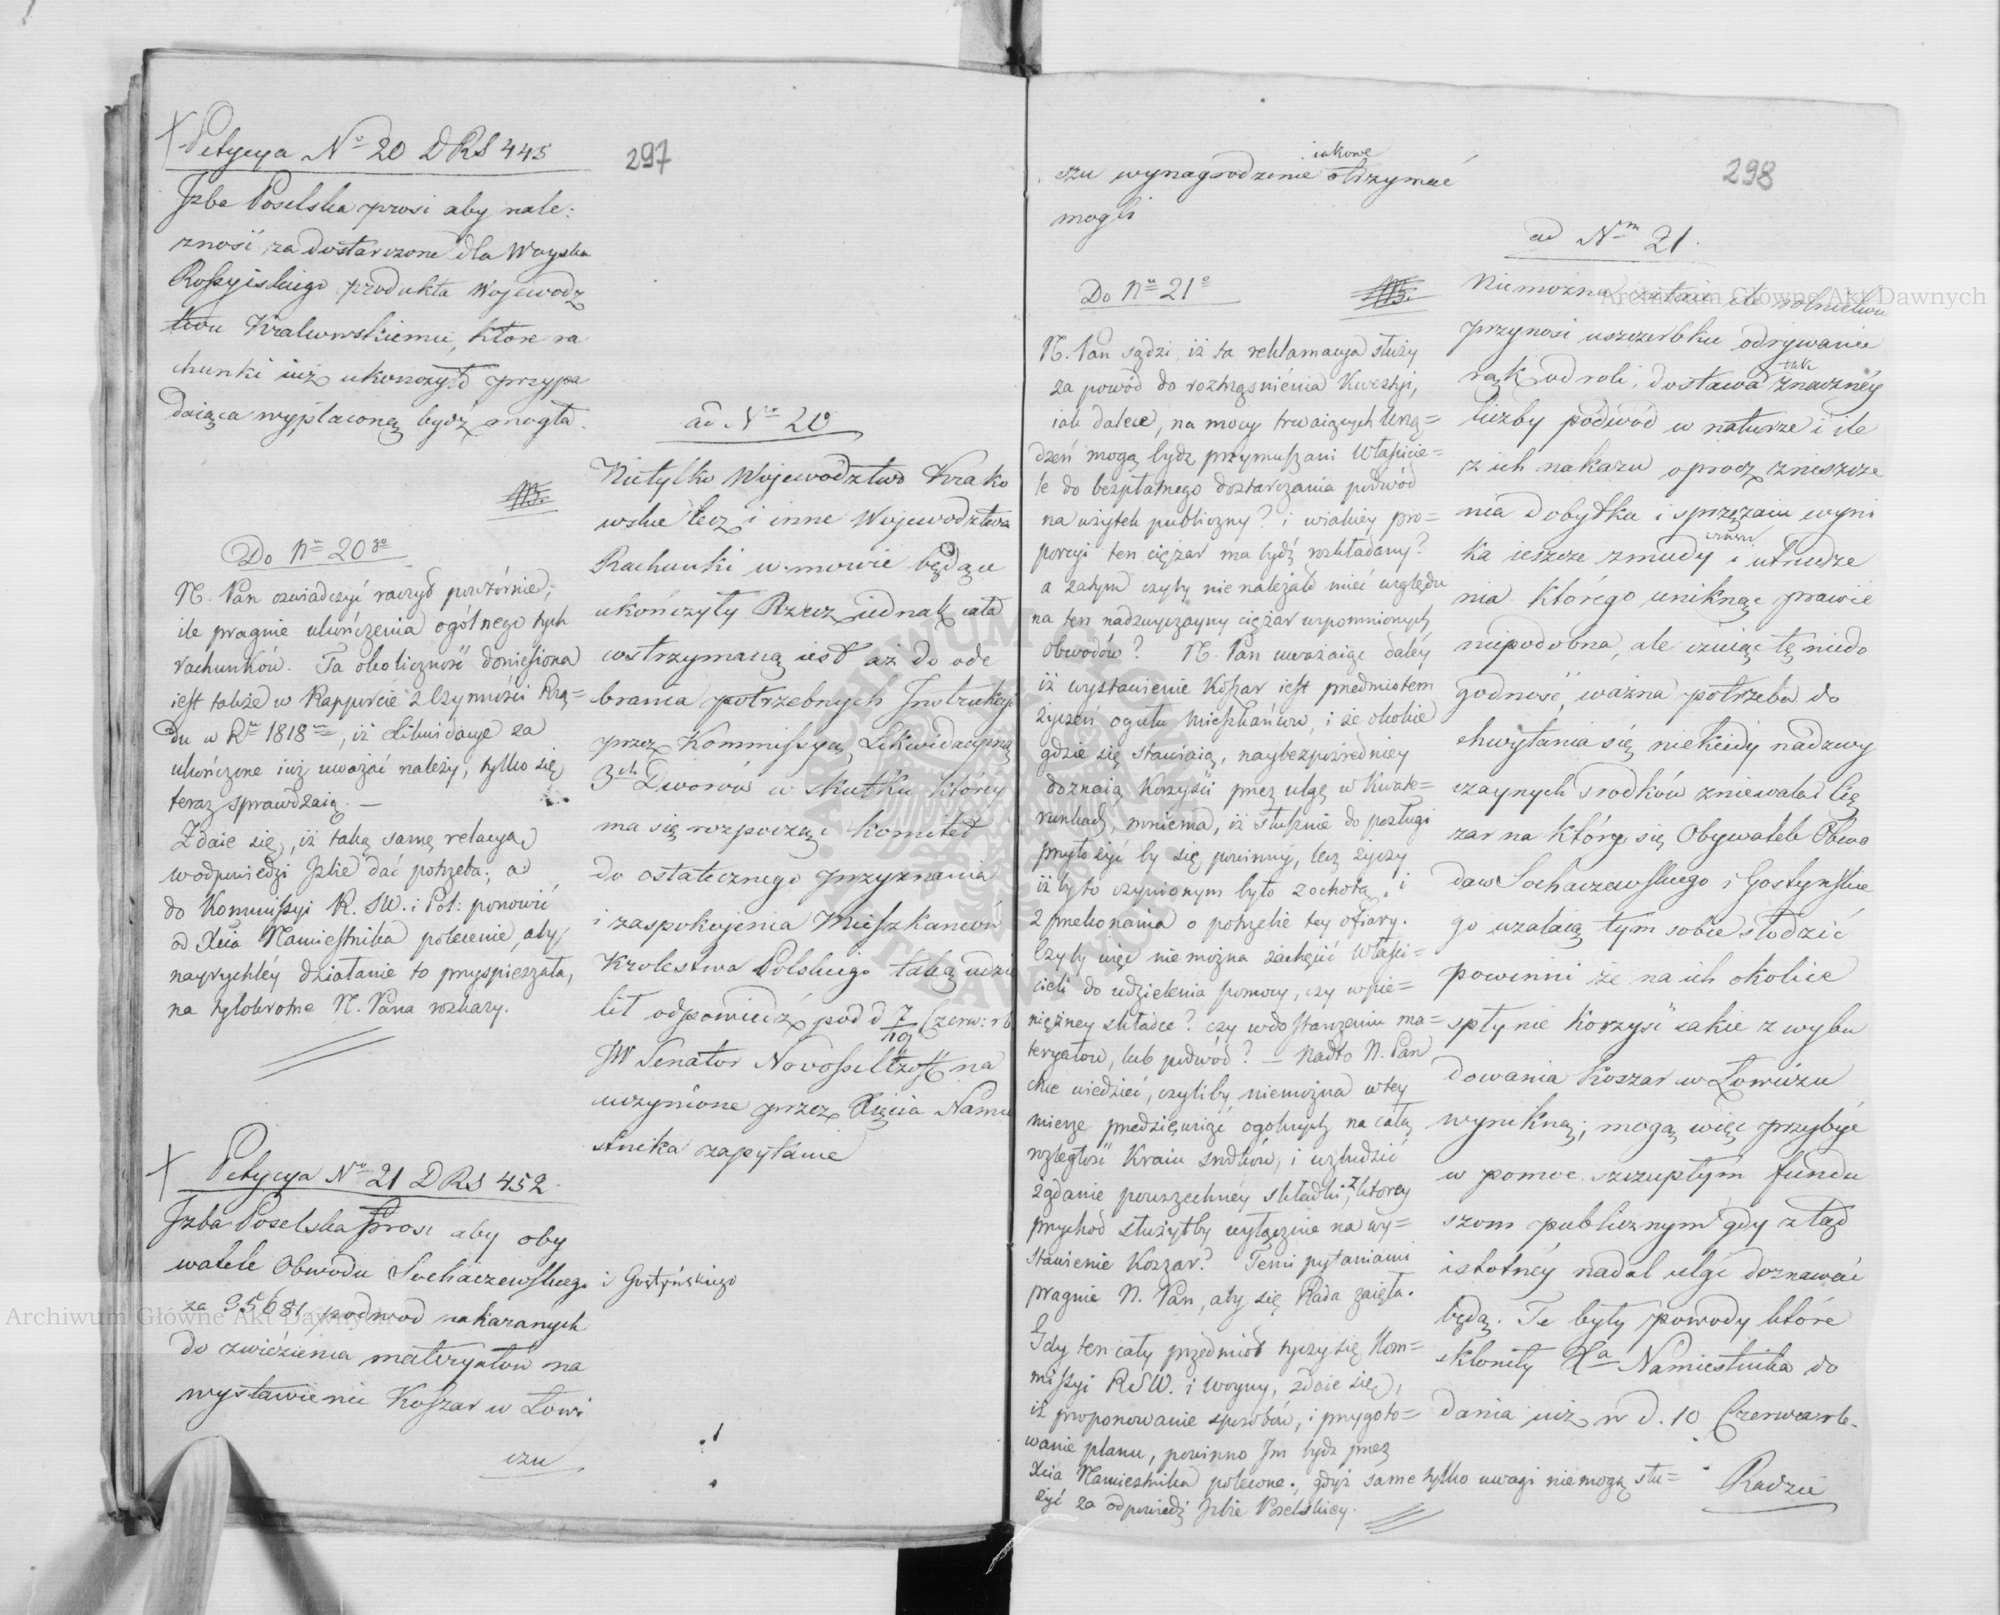 297
Petycya No 20 DRS 445
Izba Poselska prosi aby nale:
zność za dostarczone dla Woyska
Rossyiskiego produkta Wojewodz
twu Krakowskiemu, które ra
chunki iuż ukończyło przypa
daiąca wypłaconą bydź mogła.
Do Nru 20go
N. Pan oświadczyć raczył powtórnie,
ile pragnie ukończenia ogólnego tych
rachunków. Ta okoliczność doniesiona
iest także w Rapporcie z Czynności Rzą=
du w Ru 1818m, iż Likwidacye za
ukończone iuż uważać należy, tylko się
teraz sprawdzaią. —
Zdaie się, iż taką samę relacyą
w odpowiedzi Izbie dać potrzeba; a
do Kommissyi R. SW. i Pol: ponowić
od Xcia Namiestnika polecenie, aby
nayrychléy działanie to przyspieszała,
na tylokrotne N. Pana rozkazy.
ad No 20
Nietylko Wojewodztwo Krako
wskie lecz i inne Wojewodztwa
Rachunki w mowie będące
ukończyły Rzecz jednak cała
wstrzymaną iest aż do ode
brania potrzebnych Instrukcyi
przez Kommissyą Likwidacyiną
3ch Dworów w skutku któréy
ma się rozpocząć Komitet
do ostatecznego przyznania
i zaspokojenia Mieszkańców
Krolestwa Polskiego taką udzie
lił odpowiedź pod d 7/19 Czerw: rb
JW Senator Novossiltzoff na
uczynione przez Xięcia Namie
stnika zapytanie
Petycya No 21 DRS 452
Izba Poselska prosi aby oby
watele Obwodu Sochaczewskiego i Gostyńskiego
za 35681 podwod nakazanych
do zwiezienia materyałów na
wystawienie Koszar w Łowi
czu
298
czu wynagrodzenie iakowe otrzymać
mogli
Do Nru 21o
N. Pan sądzi, iż ta reklamacya służy
za powód do roztrząśnienia Kwestyi,
iak dalece, na mocy trwaiących Urzą=
dzeń mogą bydz przymuszani Właścicie=
le do bezpłatnego dostarczania podwód
na użytek publiczny? i w iakiéy pro=
porcyi ten ciężar ma bydź rozkładany?
a zatym czyby nie należało mieć względu
na ten nadzwyczayny ciężar wspomnionych
Obwodów? N. Pan uważaiąc daléy
iż wystawienie Koszar iest przedmiotem
życzeń ogułu Mieszkańców, i że okolice
gdzie się stawiaią, naybezpośredniey
doznaią korzyści przez ulgę w Kwate=
runkach, mniema, iż słusznie do posługi
przyłożyć by się powinny, lecz życzy
iżby to czynionym było z ochotą, i
z przekonania o potrzebie tey ofiary.
Czyby więc nie można zachęcić Właści=
cieli do udzielenia pomocy, czy w pie=
niężney składce? czy w dostarczeniu ma=
teryałów, lub podwód? — Nadto N. Pan
chce wiedzieć, czyliby niemożna w tey
mierze przedsięwziąć ogolnych na całą
rozległość Kraiu srodków, i wzbudzić
żądanie powszechnéy składki, z ktorey
przychód służyłby wyłącznie na wy=
stawienie Koszar? Temi pytaniami
pragnie N. Pan, aby się Rada zaięła.
Gdy ten cały przedmiot tyczy się Kom=
missyi RSW. i Woyny, zdaie się,
iż proponowanie sposobów, i przygoto=
wanie planu, powinno Im bydz przez
Xcia Namiestnika polecone; gdyż same tylko uwagi nie mogą słu=
żyć za odpowiedź Izbie Poselskiey.
ad Nm 21.
Niemożna zataić ile rolnictwu
przynosi uszczerbku odrywanie
rąk od roli, dostawa tak znacznéy
liczby podwód w naturze i ile
z ich nakazu oprocz zniszcze
nia dobytku i sprzężaiu wyni
ka ieszcze zmudy i utrudze
nia którego uniknąć prawie
niepodobna, ale czuiąc tę niedo
godność, ważna potrzeba do
chwytania się niekiedy nadzwy
czaynych srodków zniewala Cię
żar na który się Obywatele Obwo
dów Sochaczewskiego i Gostyńskie
go uzalaią tym sobie słodzić
powinni że na ich okolice
spłynie korzyść iakie z wybu
dowania Koszar w Łowiczu
wynikną; mogą więc przybyć
w pomoc szczupłym fundu
szom publicznym gdy ztąd
istotnéy nadal ulgi doznawać
będą. Te były powody które
skłoniły Xa Namiestnika do
dania iuż w d. 10 Czerwca rb.
Radzie
Archiwum Główne Akt Dawnych
Archiwum Główne Akt Dawnych